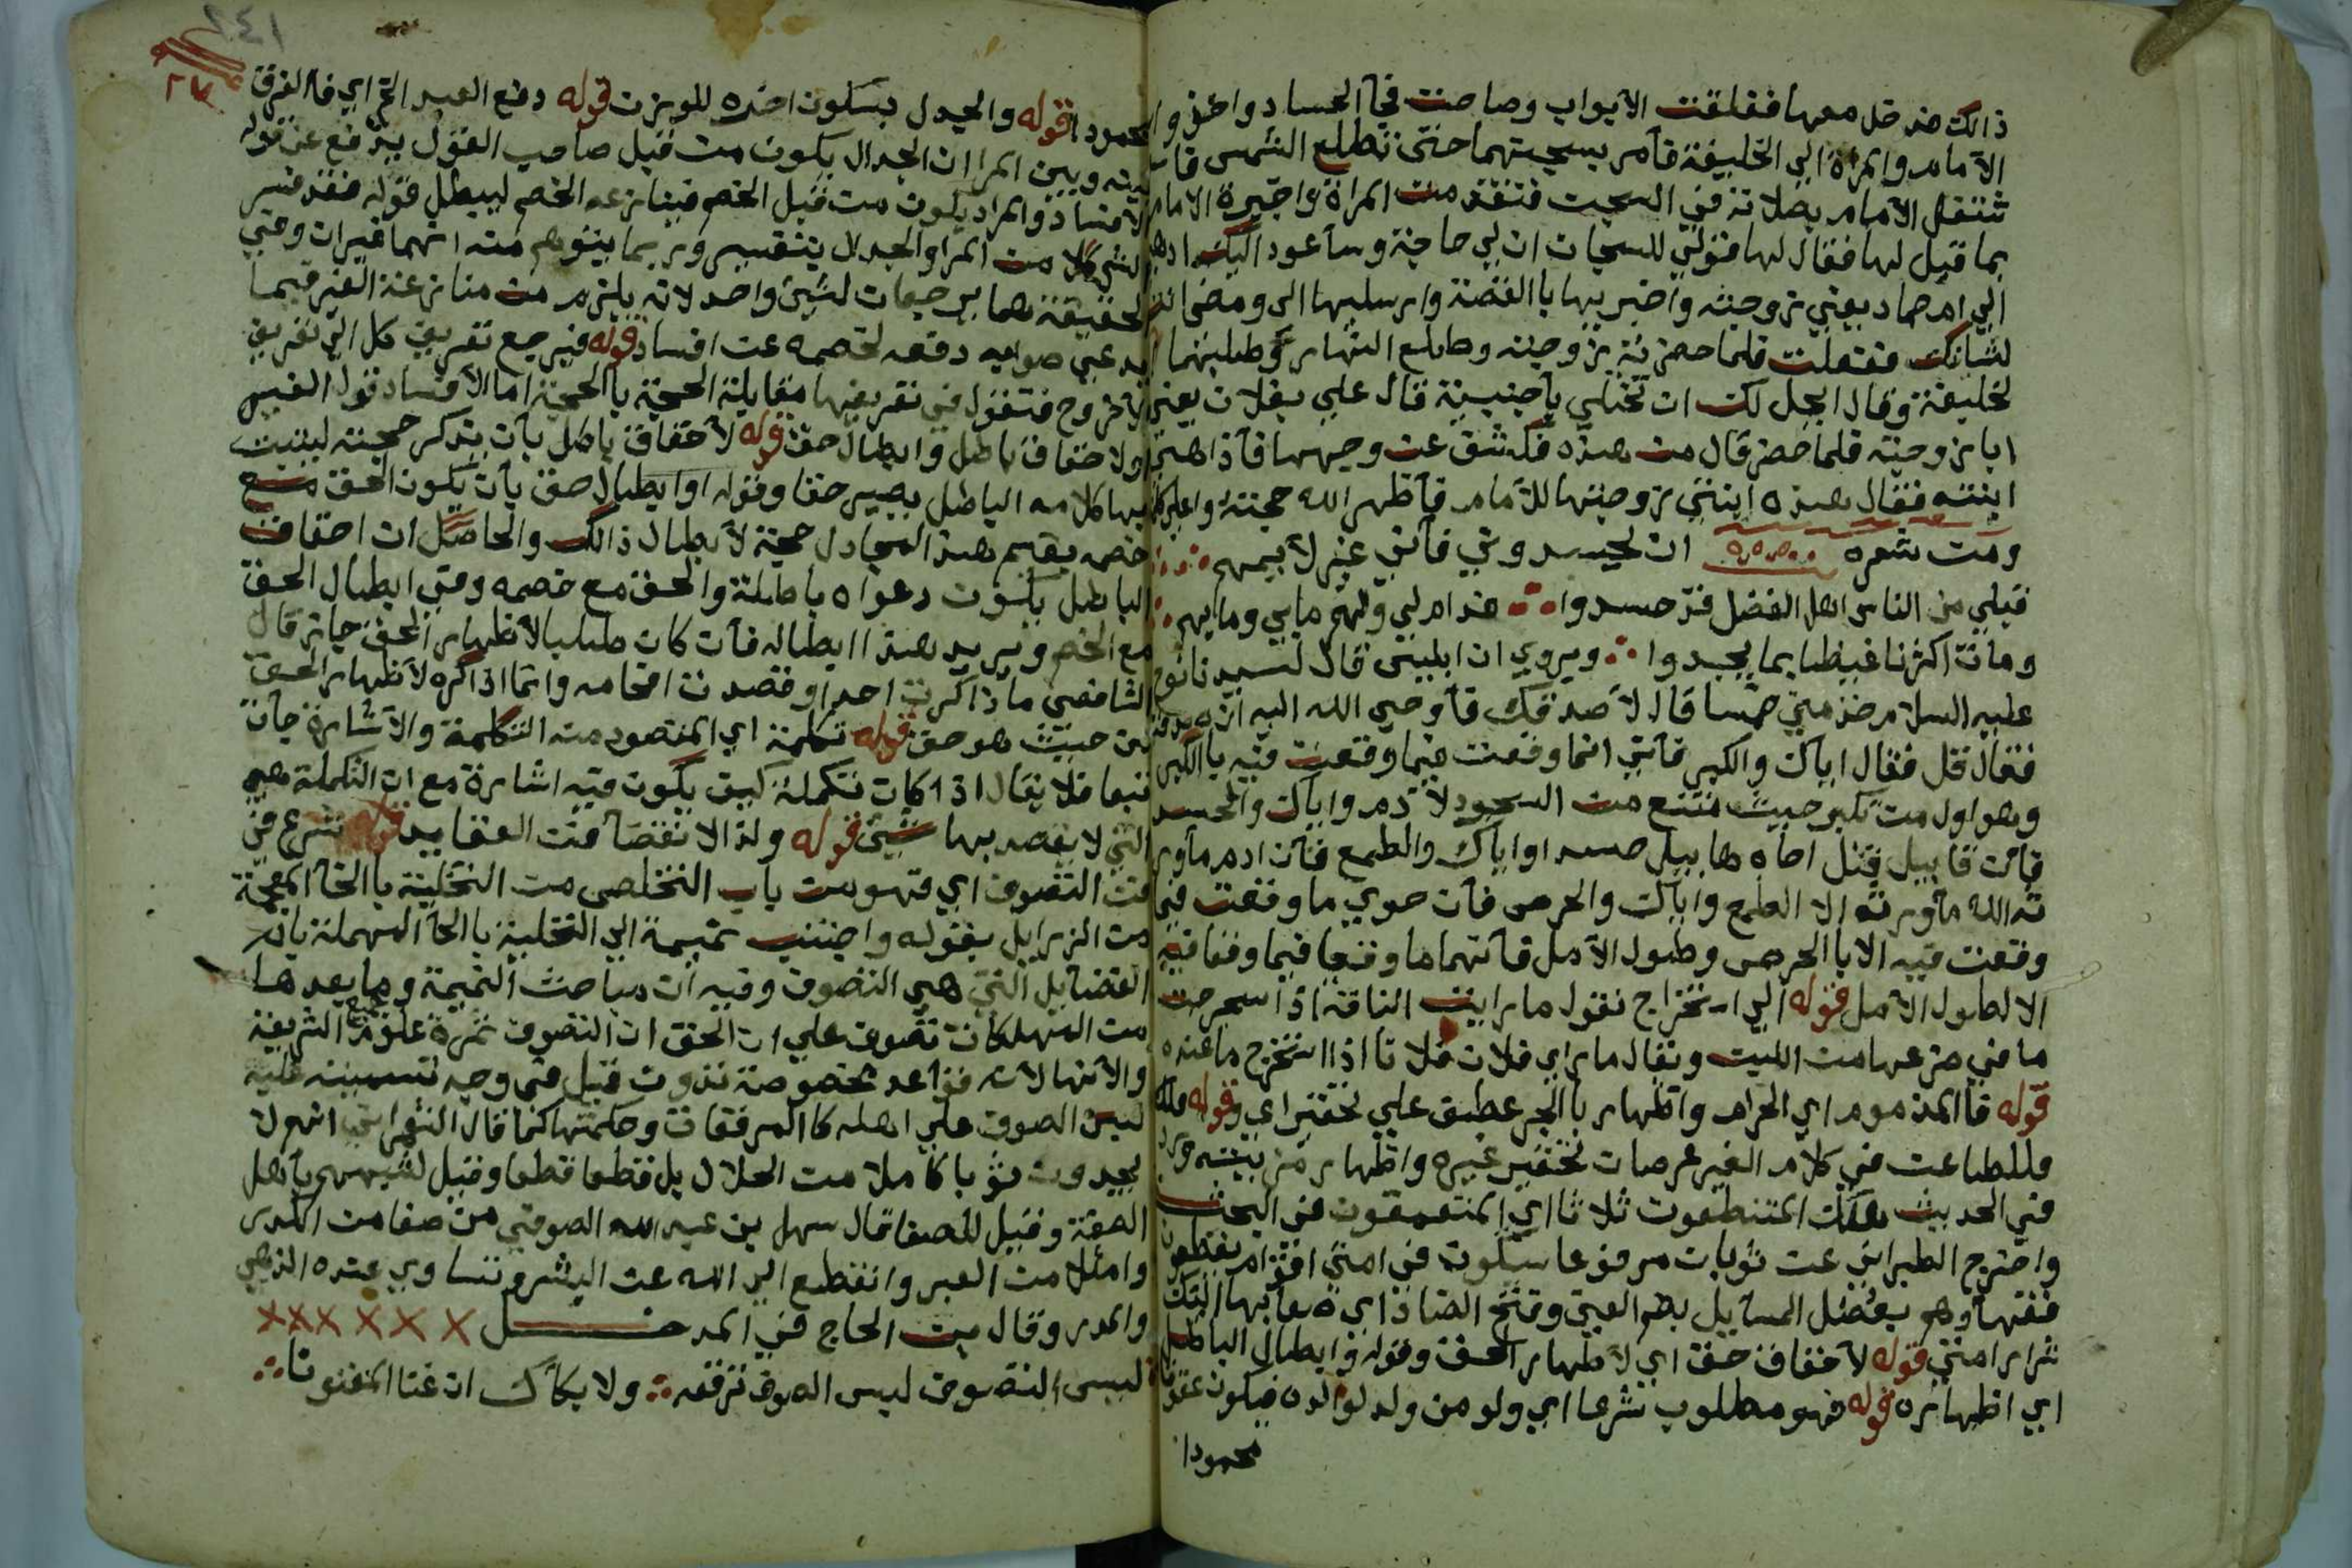 ذالك فدخل معها فغلقت الأبواب وصاحت فجآ الحساد واخذوا
الامام والمرأة الي الخليفة فآمر بسجنهما حتى تطلع الشمس
شتغل الامام بصلاته في السجن فتقدمت المرأة واخبرة الامام
بما قيل لها فقال لها قولي للسجان ان لي حاجة وسأعود اليك
الي ام حماد يعني زوجته واخبريها باالقصة وارسليها الي ومضي انت
لشأنك ففعلت فلما حضرته زوجته وطلع النهار وطلبهما
لخليفة وقال ايحل لك ان تختلي بأجنبية قال علي بفلان يعني
ابا زوجته فلما حضر قال من هذه فكشف عن وجهها فآذا هي
ابنته فقال هذه ابنتي زوجتها للأمام فآظهر الله حجته
ومن شعره ان يحسدوني فآني غير لآيمهم
قبلي من الناس اهل الفضل قد حسدوا فدام لي ولهم مابي وما بهم
ومات اكثرنا غيظا بما يجدوا ويروي ان ابليس قال لسيدنا نوح
عليه السلام خذ مني خمسا قال لآ صدقك فآوحى الله اليه ان صدقه
فقال قل فقال اياك والكبر فآني انما وقعت فيما وقعت فيه باالكبر
وهو اول من تكبر حيث منتنع من السجود لآدم واياك والحسد
فآن قابيل قتل اخآه هابيل حسدا واياك والطمع فآن ادم مآور
ثه الله مآورثه الا الطمع واياك والحرص فآن حوي ما وقعت فيما
وقعت فيه الا باالحرص وطول الآمل فآنهما ما وقعا فيما وقعا فيه
الا لطول الآمل قوله الي استخراج نقول ما رايت الناقة اذا
ما في ضرعها من اللبن ونقال ماراي فلان فلانا اذا استخرج ما عنده
قوله فاالمذموم اي الحرام واظهار باالجر عطف علي تحقير اي وقوله
فللطاعن في كلام الغير غرضان تحقير غيره واظهار مزيته
في الحديث هلك المتنطعون ثلاثا اي المتعمقون في البحث
واخرج الطبراني عن ثوبان مرفوعا سيكون في امتي اقوام يغلطون
فقهآوهم بعضل المسآيل بضم العين وفتح الضاد اي صعابها الئك
شرار امتي قوله لآحقاق حق اي لآظهار الحق وقوله وابطال الباطل
اي اظهاره قوله فهو مطلوب شرعا اي ولو من ولد لوالده فيكون عقوقا
محمودا
محمودا قوله والجدل بسكون اخره للوزن قوله دفع العبد الخ اي فاالفرق
بينه وبين المرا ان الجدال يكون من قبل صاحب القول يدفع عن قوله
لافساد والمرا ديكون من قبل الخصم فينازعه الخصم ليبطل قوله فقد فسر
الشي كلا من المرا والجدال بتفسير وربما يتوهم منه انهما غيران وفي
الحقيقة هما يرجعان لشئ واحد لانه يلزم من منازعة الغير فيما
يدعي صوابه دفعه لخصمه عن افساد قوله فيرجع تعريف كل الي تعريف
لآخر وح فتقول في تعريفها مقابلة الحجة باالحجة اما لآفساد قول الغير
اولاحقاق باطل وابطال حق قوله لآحقاق باطل بآن يذكر حجته ليثبت
بها كلامه الباطل بصير حقا وقوله اوابطال حق بآن يكون الحق مع
خصمه يقيم هذا المجادل حجة لآبطال ذالك والحاصل ان احقاق
الباطل بكون دعواه باطلة والحق مع خصمه وفي ابطال الحق
مع الخصم ويريد هذا ابطاله فآن كان طلبا لآظهار الحق جاز قال
الشافعي ما ذاكرت احدا وقصدت افحامه وانما اذاكره لآظهار الحق
من حيث هو حق قوله تكلمة اي المقصود منه التكلمة والآشارة جآت
تبعا فلا يقال اذا كان تكملة كيف يكون فيه اشارة مع ان التكملة هي
التي لايقصد بها شئ قوله ولذا الا نقضآ فن العقايد شرع في
فن التصوف اي فهو من باب التخلص من التخلية باالخآ المعجمة
من الرزايل بقوله واجتنب نميمة الي التحلية باالحآ المهملة باد
الفضايل التي هي التصوف وفيه ان مباحث النميمة وما بعدها
من المهلكان تصوف علي ان الحق ان التصوف ثمرة جميع علوم الشريعة
والآتها لآنه قواعد مخصوصة تدون قيل في وجه تسميته غلبة
لبس الصوف علي اهله كاالمرقعات وحكمتها كما قال الشعراني انهم لا
يجدون ثوبا كاملا من الحلال بل قطعا قطعا وقيل لشبههم بأهل
الصفة وقيل للصفا قال سهل بن عبد الله الصوفي من صفا من الكدر
وامتلا من العبر وانقطع الي الله عن البشر وتساوي عنده الذهب
والمدر وقال بن الحاج في المدخل
ليس التصوف لبس الصوف ترقعه ولا بكآك ان غنا المغنونا